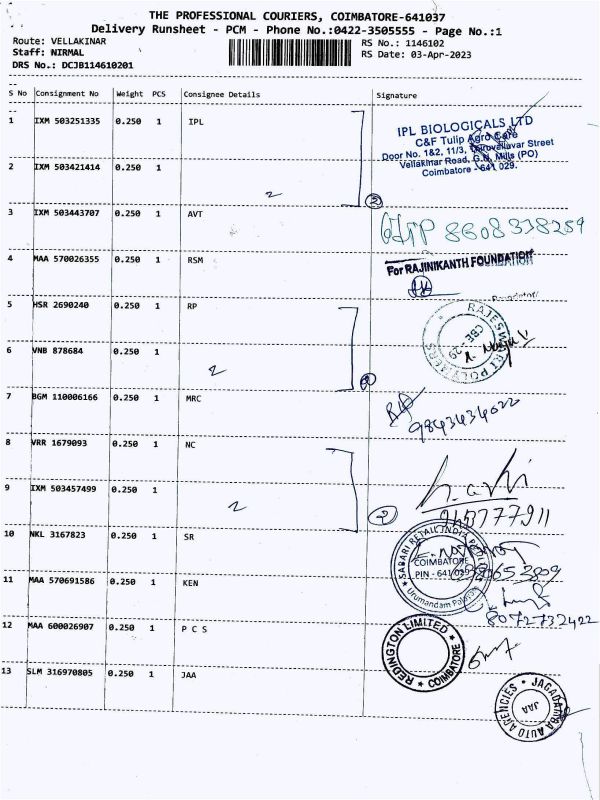 THE PROFESSIONAL COURIERS, COIMBATORE-641037
Delivery Runsheet - PCM - Phone No.:0422-3505555 - Page No.:1
Route: VELLAKINAR
Staff: NIRMAL
DRS No.: DCJB114610201
RS No.: 1146102
RS Date: 03-Apr-2023
S No Consignment No Weight PCS Consignee Details Signature
1 IXM 503251335 0.250 1 IPL
IPL BIOLOGICALS LTD
C&F Tulip Agro Care
Door No. 1&2, 11/3, Thiruvalluvar Street
Vellakinar Road, G.N. Mills (PO)
Coimbatore - 641 029.
2 IXM 503421414 0.250 1
2
2
3 IXM 503443707 0.250 1 AVT
8608338259
4 MAA 570026355 0.250 1 RSM
For RAJINIKANTH FOUNDATION
5 HSR 2690240 0.250 1 RP
RAJESWARI POLYMERS
CBE - 29
6 VNB 878684 0.250 1
2
2
7 BGM 110006166 0.250 1 MRC
9843434022
8 VRR 1679093 0.250 1 NC
9 IXM 503457499 0.250 1
2
2
10 NKL 3167823 0.250 1 SR
SABARI RETAIL INDIA
COIMBATORE
PIN - 641 029
Urumandam Palayam
11 MAA 570691586 0.250 1 KEN
8072732422
12 MAA 600026907 0.250 1 P C S
REDINGTON LIMITED
COIMBATORE
13 SLM 316970805 0.250 1 JAA
JAGADAMBA AUTO AGENCIES
JAA